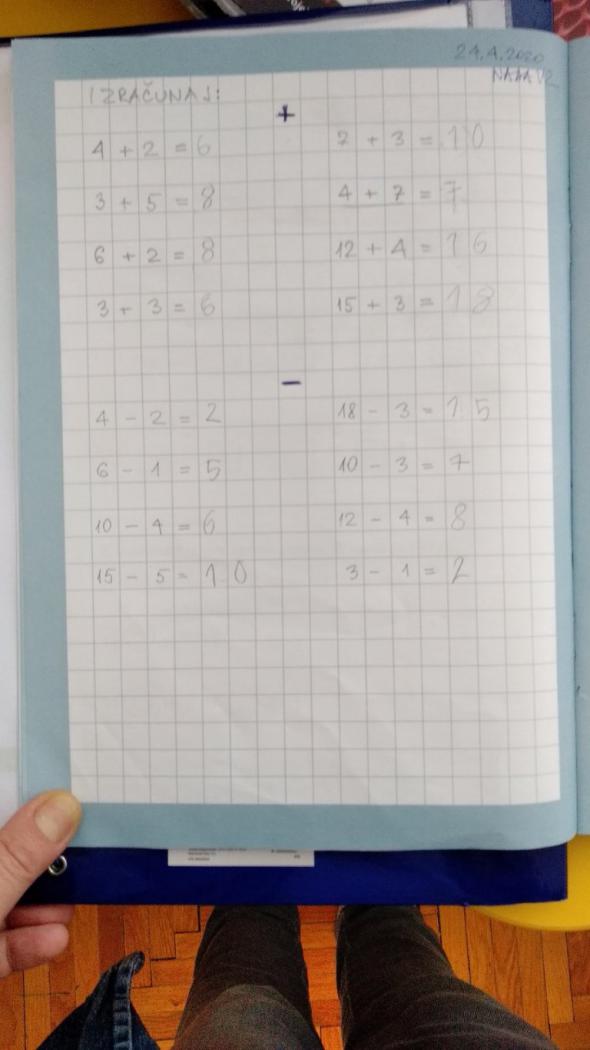 24.4.2020
IZRAČUNAJ:
+
4 + 2 = 6
7 + 3 = 10
3 + 5 = 8
4 + 7 = 7
6 + 2 = 8
12 + 4 = 16
3 + 3 = 6
15 + 3 = 18
−
4 - 2 = 2
18 - 3 = 15
6 - 1 = 5
10 - 3 = 7
10 - 4 = 6
12 - 4 = 8
15 - 5 = 10
3 - 1 = 2